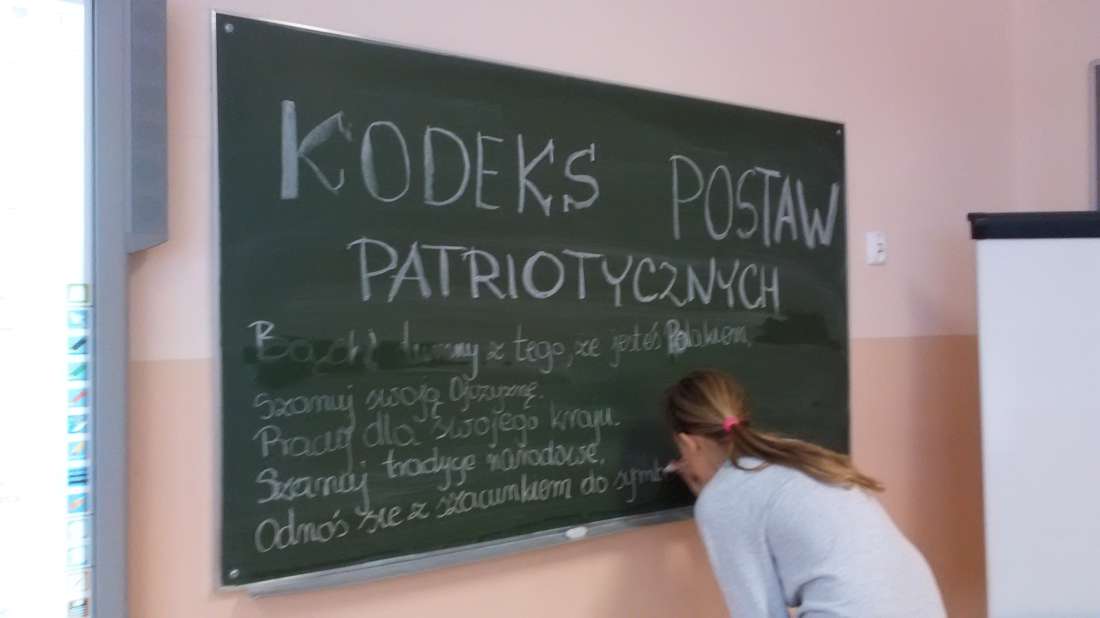 KODEKS POSTAW
PATRIOTYCZNYCH
Bądź dumny z tego, że jesteś Polakiem,
Szanuj swoją Ojczyznę.
Pracuj dla swojego kraju.
Szanuj tradycje narodowe.
Odnoś się z szacunkiem do symb